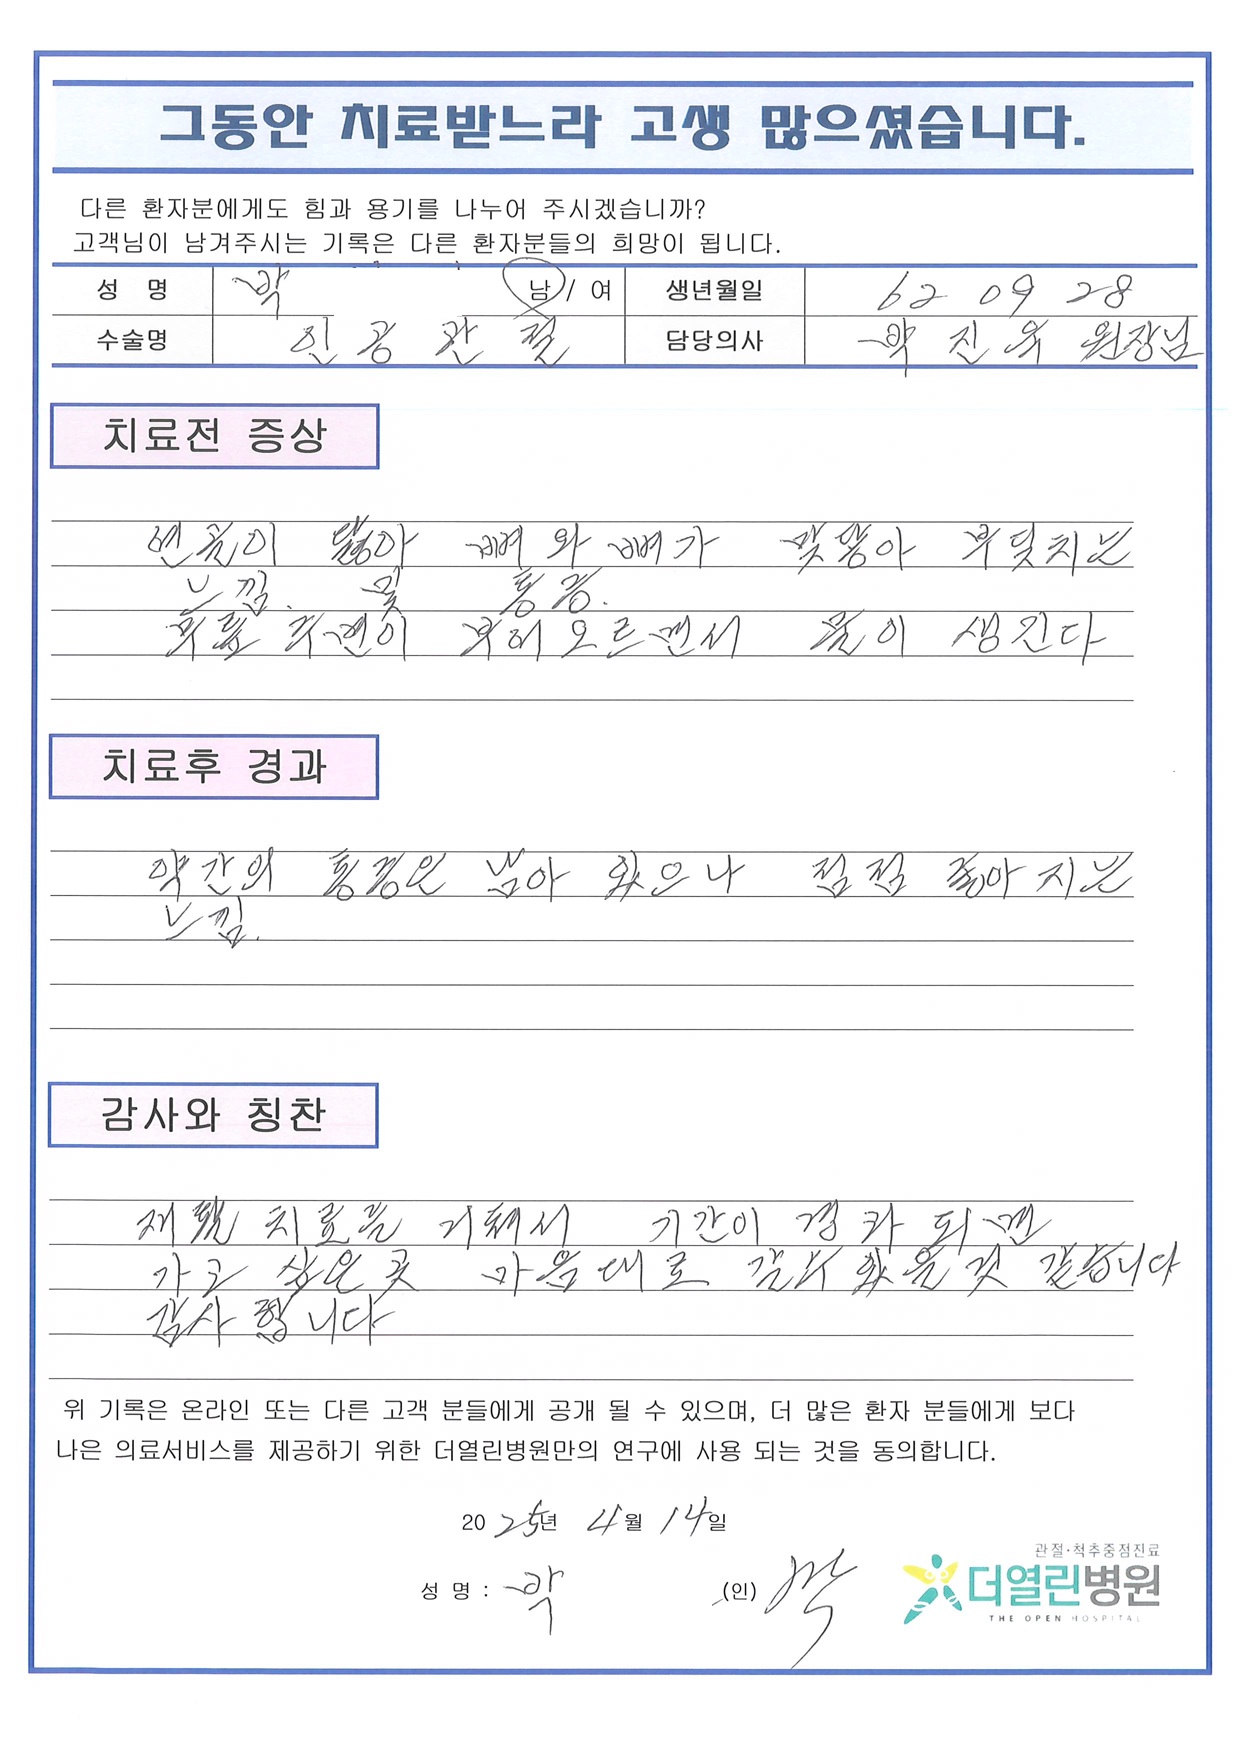 그동안 치료받느라 고생 많으셨습니다.
다른 환자분에게도 힘과 용기를 나누어 주시겠습니까?
고객님이 남겨주시는 기록은 다른 환자분들의 희망이 됩니다.
성 명 박 남 / 여 생년월일 62 09 28
수술명 인공관절 담당의사 박진욱 원장님
치료전 증상
연골이 닳아 뼈와 뼈가 맞닿아 부딪치는
느낌. 및 통증.
무릎 주변이 부어 오르면서 물이 생긴다
치료후 경과
약간의 통증은 남아 있으나 점점 좋아지는
느낌.
감사와 칭찬
재활 치료를 거쳐서 기간이 경과 되면
가고 싶은 곳 마음대로 갈수 있을것 같습니다
감사 합니다
위 기록은 온라인 또는 다른 고객 분들에게 공개 될 수 있으며, 더 많은 환자 분들에게 보다
나은 의료서비스를 제공하기 위한 더열린병원만의 연구에 사용 되는 것을 동의합니다.
2025년 4월 14일
성 명 : 박 (인) 박
관절·척추중점진료
더열린병원
THE OPEN HOSPITAL